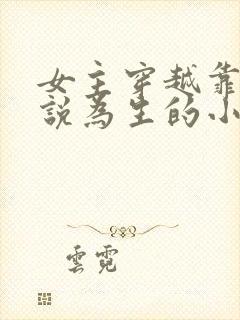 女主穿越靠
說為生的小
雲霓